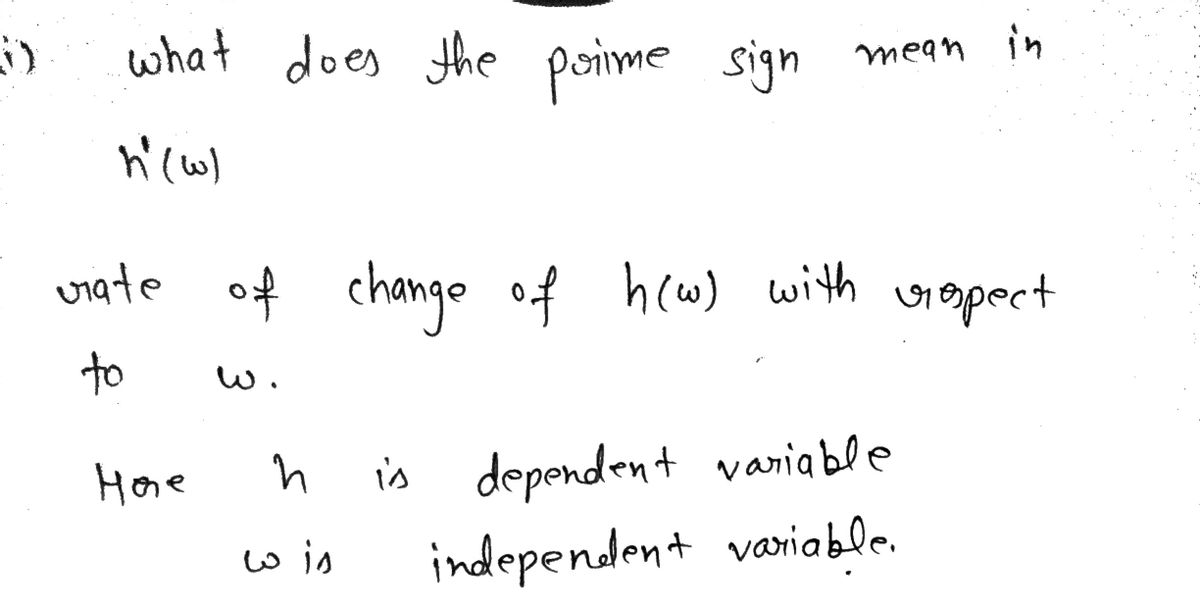 i) what does the prime sign mean in
h'(w)
rate of change of h(w) with respect
to w.
Here h is dependent variable
w is independent variable.